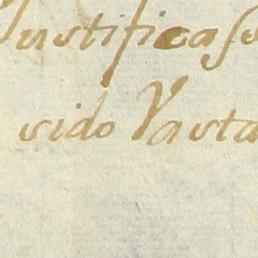 Justificaſo
sido Vasta